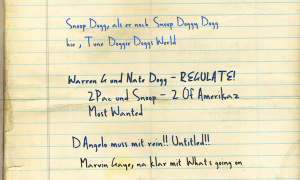 Snoop Dogg, als er noch Snoop Doggy Dogg
hie, Tune Doggie Doggs World
Warren G und Nate Dogg - REGULATE!
2Pac und Snoop - 2 Of Amerikaz
Most Wanted
DAngelo muss mit rein!! Untitled!!
Marvin Gaye, na klar mit Whats going on